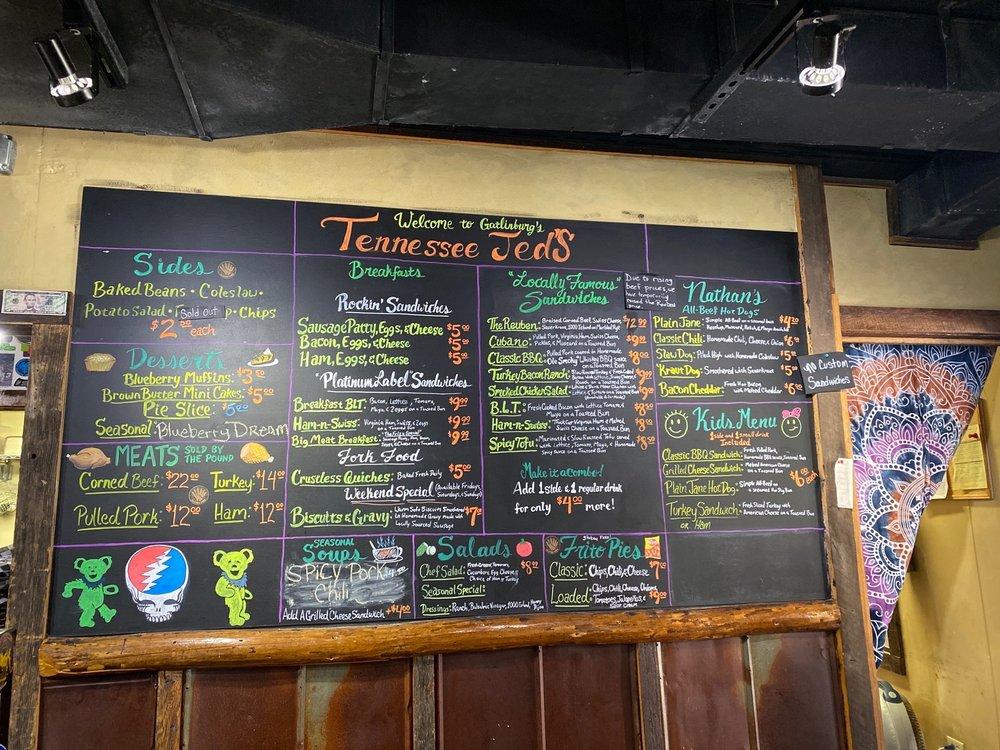 Welcome to Gatlinburg's
Tennessee Jed's
Sides
Baked Beans • Coleslaw •
Potato Salad • Sold Out • Chips
$2 00 each
Desserts
Blueberry Muffins: $3 50
Brown Butter Mini Cakes: $5 00
Pie Slice: $5 00
Seasonal: Blueberry Dream
MEATS SOLD BY THE POUND
Corned Beef: $22 00 Turkey: $14 00
Pulled Pork: $12 00 Ham: $12 00
Breakfasts
Rockin' Sandwiches
Sausage Patty, Eggs, & Cheese $5 00
Bacon, Eggs, & Cheese $5 00
Ham, Eggs, & Cheese $5 00
"Platinum Label" Sandwiches
Breakfast BLT: Bacon, Lettuce, Tomato,
Mayo, & 2 Eggs on a Toasted Bun $9 99
Ham-n-Swiss: Virginia Ham, Swiss, & 2 Eggs
on a Toasted Bun $9 99
Big Meat Breakfast: $9 99
Fork Food
Crustless Quiches: Baked Fresh Daily $5 00
Weekend Special (Available Fridays, Saturdays, & Sundays)
Biscuits & Gravy: Warm Soft Biscuits Smothered
in Homemade Gravy made with
Locally Sourced Sausage
"Locally Famous"
Sandwiches
Due to rising
beef prices, we
have temporarily
The Reuben: Braised Corned Beef, Swiss Cheese,
Sauerkraut, 1000 Island on Marbled Rye
Cubano: Pulled Pork, Virginia Ham, Swiss Cheese,
Pickles, & Mustard on a Toasted Bun
Classic BBQ: Pulled Pork coated in Homemade
Ole Smoky Whiskey BBQ Sauce
on a Toasted Bun
Turkey Bacon Ranch:
Smoked Chicken Salad:
B.L.T.: Fresh Cooked Bacon with Lettuce, Tomato, &
Mayo on a Toasted Bun
Ham-n-Swiss: Thick Cut Virginia Ham & Melted
Swiss Cheese on a Toasted Bun
Spicy Tofu: Marinated & Slow Roasted Tofu served
with Lettuce, Tomato, Mayo, & Homemade
Spicy Sauce on a Toasted Bun
Make it a combo!
Add 1 side & 1 regular drink
for only $4 00 more!
Nathan's
All-Beef Hot Dogs
Plain Jane: Simple All-Beef on a Steamed Bun
Ketchup, Mustard, Relish, & Mayo
Classic Chili: Homemade Chili, Cheese, & Onion
Slaw Dog: Piled High with Homemade Coleslaw
"Kraut Dog: Smothered with Sauerkraut
Bacon Cheddar:
No Custom
Sandwiches
Kids Menu
1 side and 1 small drink
Included
Classic BBQ Sandwich: Fresh Pulled Pork,
Homemade BBQ Sauce, Toasted Bun
Grilled Cheese Sandwich: Melted American
Cheese on a Toasted Bun
Plain Jane Hot Dog: Simple All-Beef on
a Steamed Hot Dog Bun
Turkey Sandwich: Fresh Sliced Turkey with
American Cheese on a Toasted Bun
or Ham
SEASONAL
Soups
Spicy Pork
Chili
Add A Grilled Cheese Sandwich + $4 00
Salads
Chef Salad: Fresh Greens, Tomatoes,
Cucumbers, Egg, Cheese, &
Choice of Ham or Turkey
Seasonal Special:
Dressings: Ranch, Balsamic Vinaigrette, 1000 Island, Honey
Frito Pies
Classic: Chips, Chili, & Cheese
Loaded: Chips, Chili, Cheese, Onions,
Tomatoes, Jalapeños, &
Sour Cream